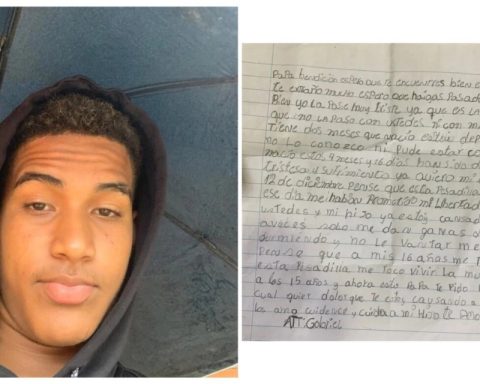 PaPa bendicion espero que te encuentres bien e
te extraño mucho espero que haigas Pasado
Bien yo la Pase muy triste ya que es la
que no la Paso con ustedes ni con m
tiene dos meses que nacio
no lo conozco ni Pude estar co
nacio estos 9 meses y 26 dias han sido d
tristesa y sufrimiento ya quiero mi
12 de diciembre Pense que esta Pesadilla
ese dia me habian Prometido mi libertad
ustedes y mi hijo ya estoy cansad
aveces solo me dan ganas d
durmiendo y no levantar me
Pense que a mis 16 años me t
esta Pesadilla me toco vivir la mu
a los 15 años y ahora esto PaPa te Pido
cual quier dolor que te estoy causando a
los amo cuidence y cuida a mi hijo te amo
ATT: Gabriel